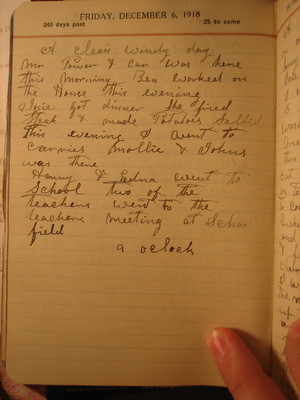 FRIDAY, DECEMBER 6, 1918
340 days past 25 to come
A Clear windy day
Mr Power & Earl was here
this morning Ben worked on
the House this evening
Susie got dinner She fried
Steak & made Potatoes Sallid
this evening I went to
Carries Mollie & Johns
was there
Henry & Edna went to
School two of the
teachers went to the
teachers meeting at
field
9 oclock